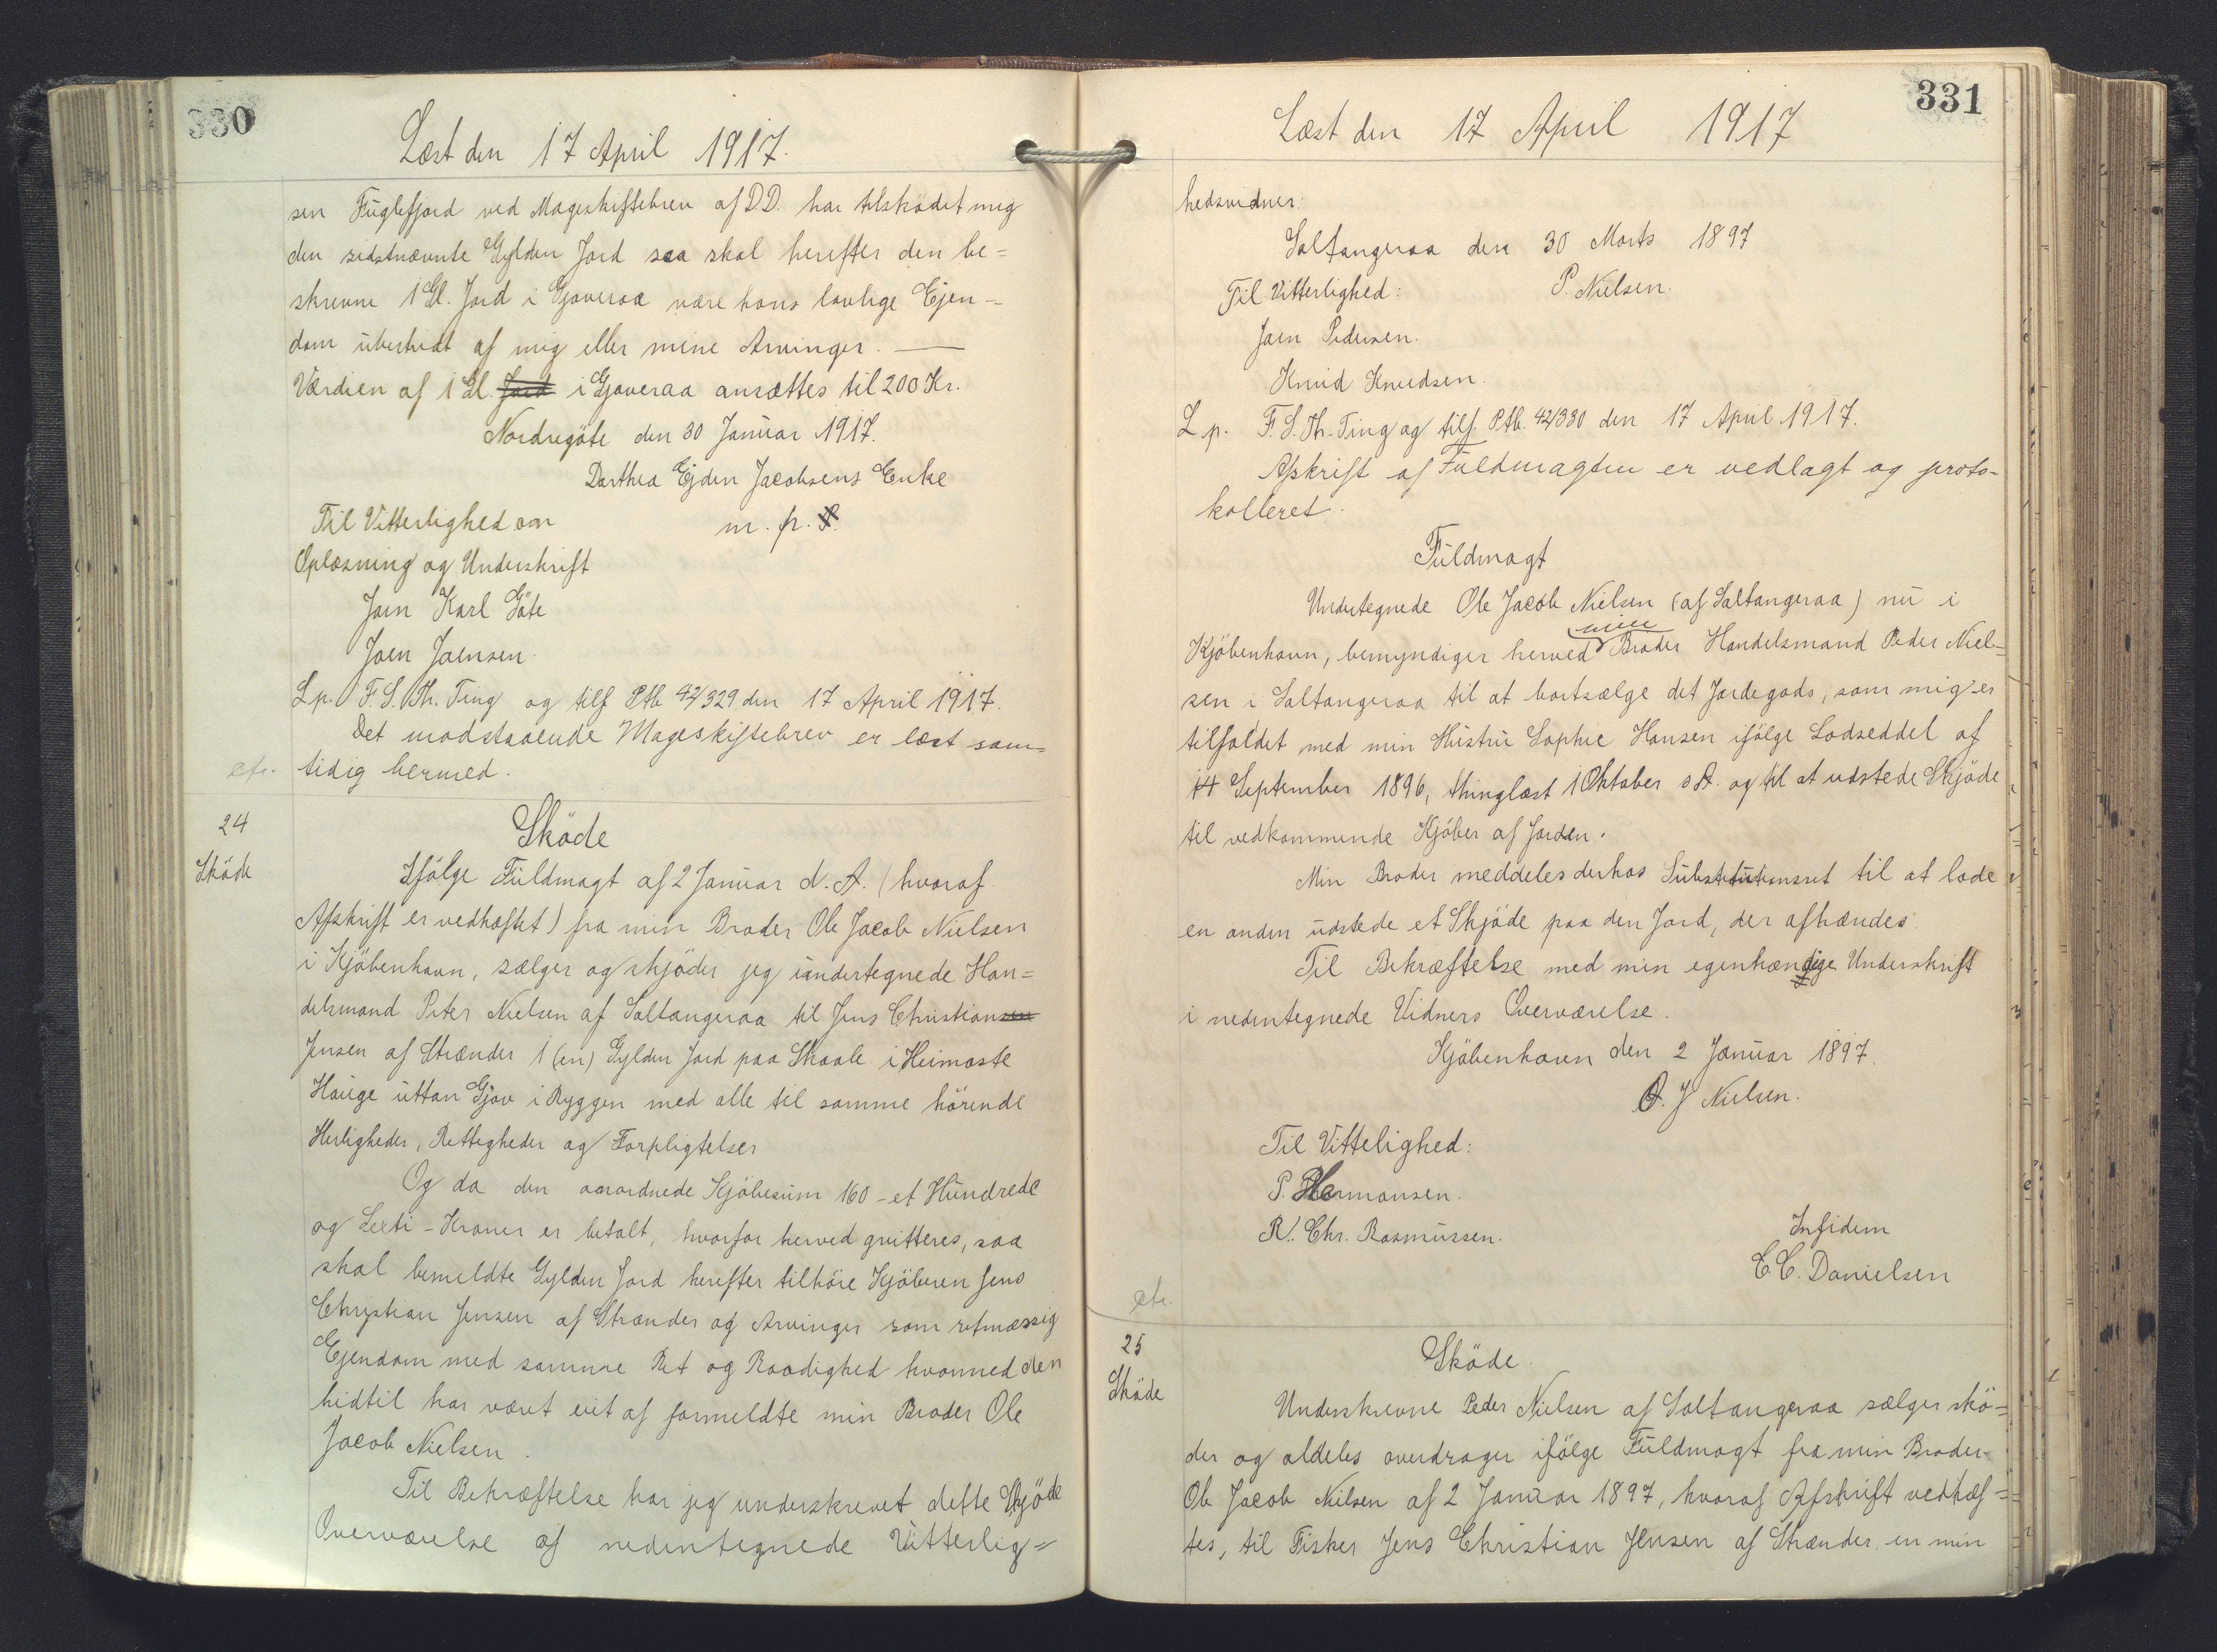 330
Læst den 17 April 1917.
sen Fuglefjord ved Mageskiftebrev af D.D. har tilskødet mig
den sidstnævnte Gylden Jord saa skal herefter den be=
skrevne 1 Gl. Jord i Gjoveraa være hans lovlige Ejen-
dom ubestridt af mig eller mine Arvinger. —
Værdien af 1 Gl. Jord i Gjoveraa ansættes til 200 Kr.
Nordregöte den 30 Januar 1917.
Dorthea Ejden Jacobsens Enke
m. p. S.
Til Vitterlighed om
Oplæsning og Underskrift
Joen Karl Göte
Joen Joensen.
L.p. F.S.Th. Ting og tilf Ptb 42/329 den 17 April 1917.
Det modstaaende Mageskiftebrev er læst sam=
efr. tidig hermed.
24
Sköde
Sköde
Ifölge Fuldmagt af 2 Januar d. A. (hvoraf
Afskrift er vedhæftet) fra min Broder Ole Jacob Nielsen
i Kjöbenhavn, sælger og skjöder jeg undertegnede Han=
delsmand Peter Nielsen af Saltangeraa til Jens Christiansen
Jensen af Strænder 1 (en) Gylden Jord paa Skaale i Heimaste
Hauge uttan Gjov i Ryggen med alle til samme hörende
Herligheder, Rettigheder og Forpligtelser
Og da den omordnede Kjöbesum 160 – et Hundrede
og Sexti – Kroner er betalt, hvorfor herved qvitteres, saa
skal bemeldte Gylden Jord herefter tilhöre Kjöberen Jens
Christian Jensen af Strænder og Arvinger som retmæssig
Ejendom med samme Ret og Raadighed hvormed den
hidtil har været eiet af formeldte min Broder Ole
Jacob Nielsen.
Til Bekræftelse har jeg underskrevet dette Skjöde
Overværelse af nedentegnede Vitterlig=
331
Læst den 17 April 1917
hedsvidner:
Saltangeraa den 30 Marts 1897
Til Vitterlighed: P. Nielsen.
Joen Pedersen.
Knud Knudsen.
L.p. F.S.Th. Ting og tilf. Ptb. 42/330 den 17 April 1917.
Afskrift af Fuldmagten er vedlagt og proto-
kolleret.
Fuldmagt
Undertegnede Ole Jacob Nielsen (af Saltangeraa) nu i
Kjöbenhavn, bemyndiger herved min Broder Handelsmand Peder Niel=
sen i Saltangeraa til at bortsælge det Jordegods, som mig er
tilfaldet med min Hustru Sophie Hansen ifölge Lodseddel af
14 September 1896, thinglæst 1 Oktober s.A. og til at udstede Skjöde
til vedkommende Kjöber af Jorden.
Min Broder meddeles derhos Substitutionsret til at lade
en anden udstede et Skjöde paa den Jord, der afhændes.
Til Bekræftelse med min egenhændige Underskrift
i nedentegnede Vidners Overværelse.
Kjöbenhavn den 2 Januar 1897.
O. J Nielsen.
Til Vittelighed:
P. Hermansen.
R. Chr. Rasmussen.
In fidem
C C. Danielsen
efr.
25
Sköde
Sköde.
Underskrevne Peder Nielsen af Saltangeraa sælger skö=
der og aldeles overdrager ifölge Fuldmagt fra min Broder
Ole Jacob Nielsen af 2 Januar 1897, hvoraf Afskrift vedhæf=
tes, til Fisker Jens Christian Jensen af Strænder, en min